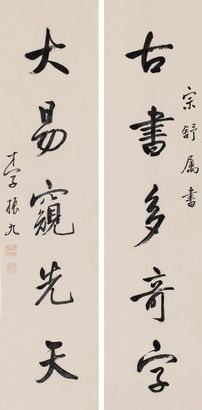 古書多奇字
宗舒属書
大易窺先天
振九